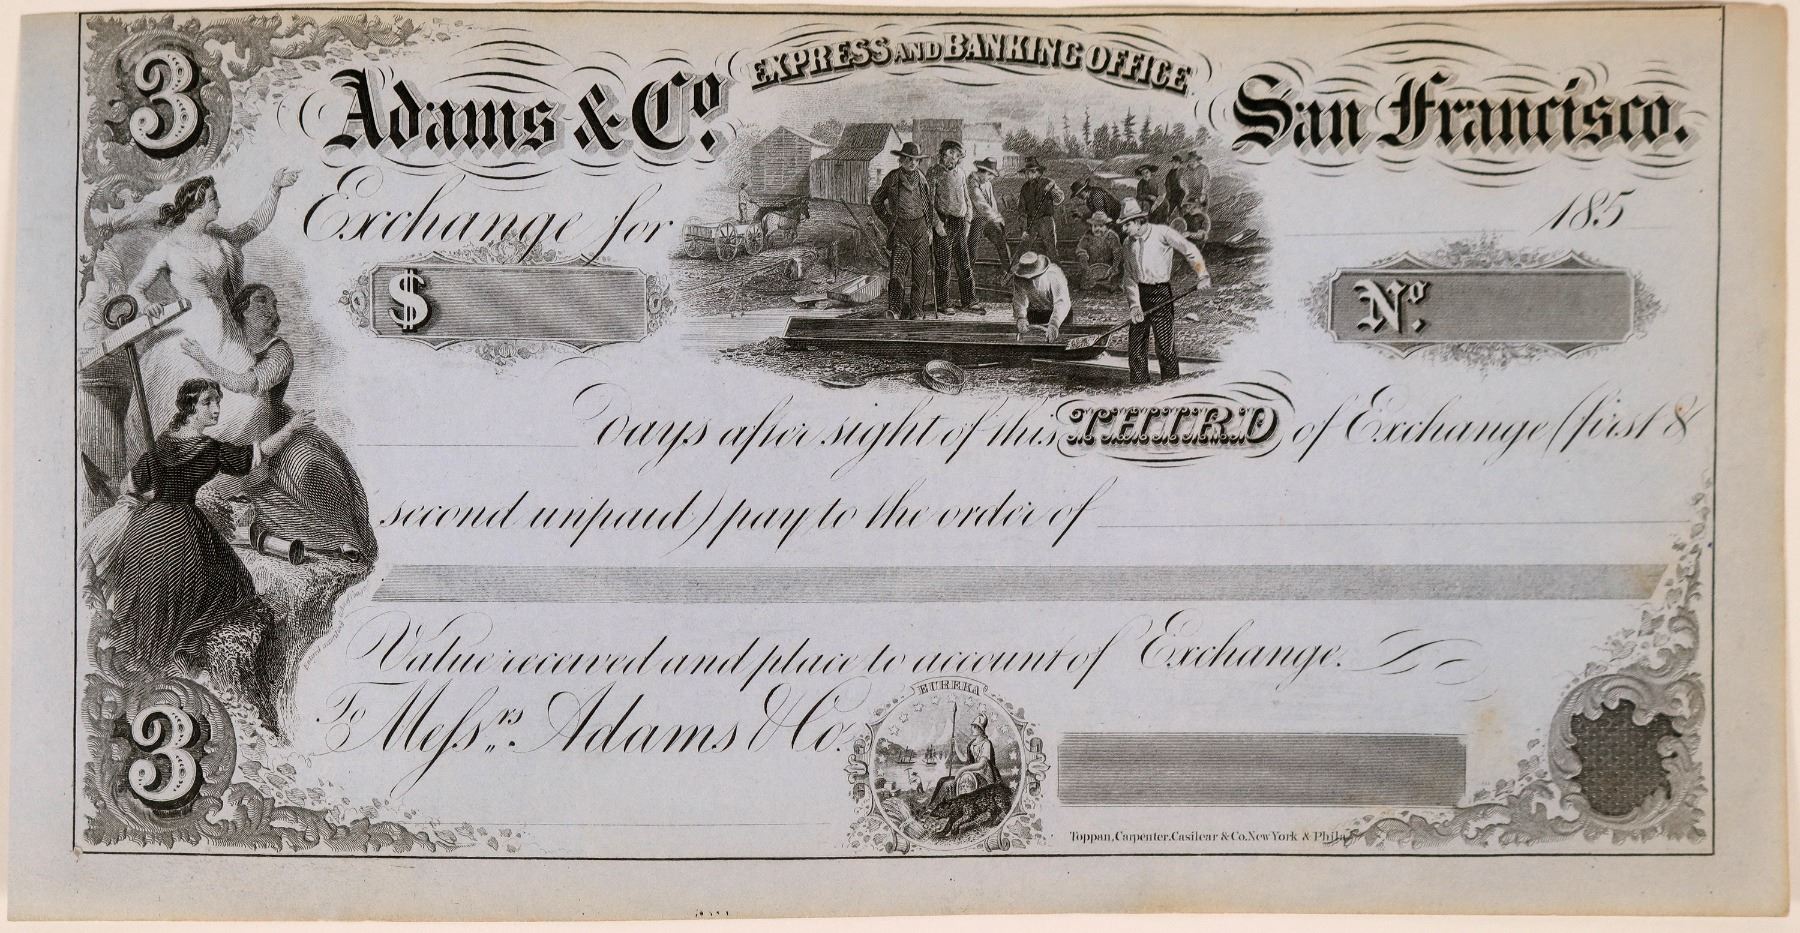 3
EXPRESS AND BANKING OFFICE
Adams & Co. San Francisco.
Exchange for 185
$ No.
Days after sight of this THIRD of Exchange (first &
second unpaid) pay to the order of
Value received and place to account of Exchange.
To Messrs. Adams & Co.
EUREKA
3
Toppan, Carpenter, Casilear & Co. New York & Phila.